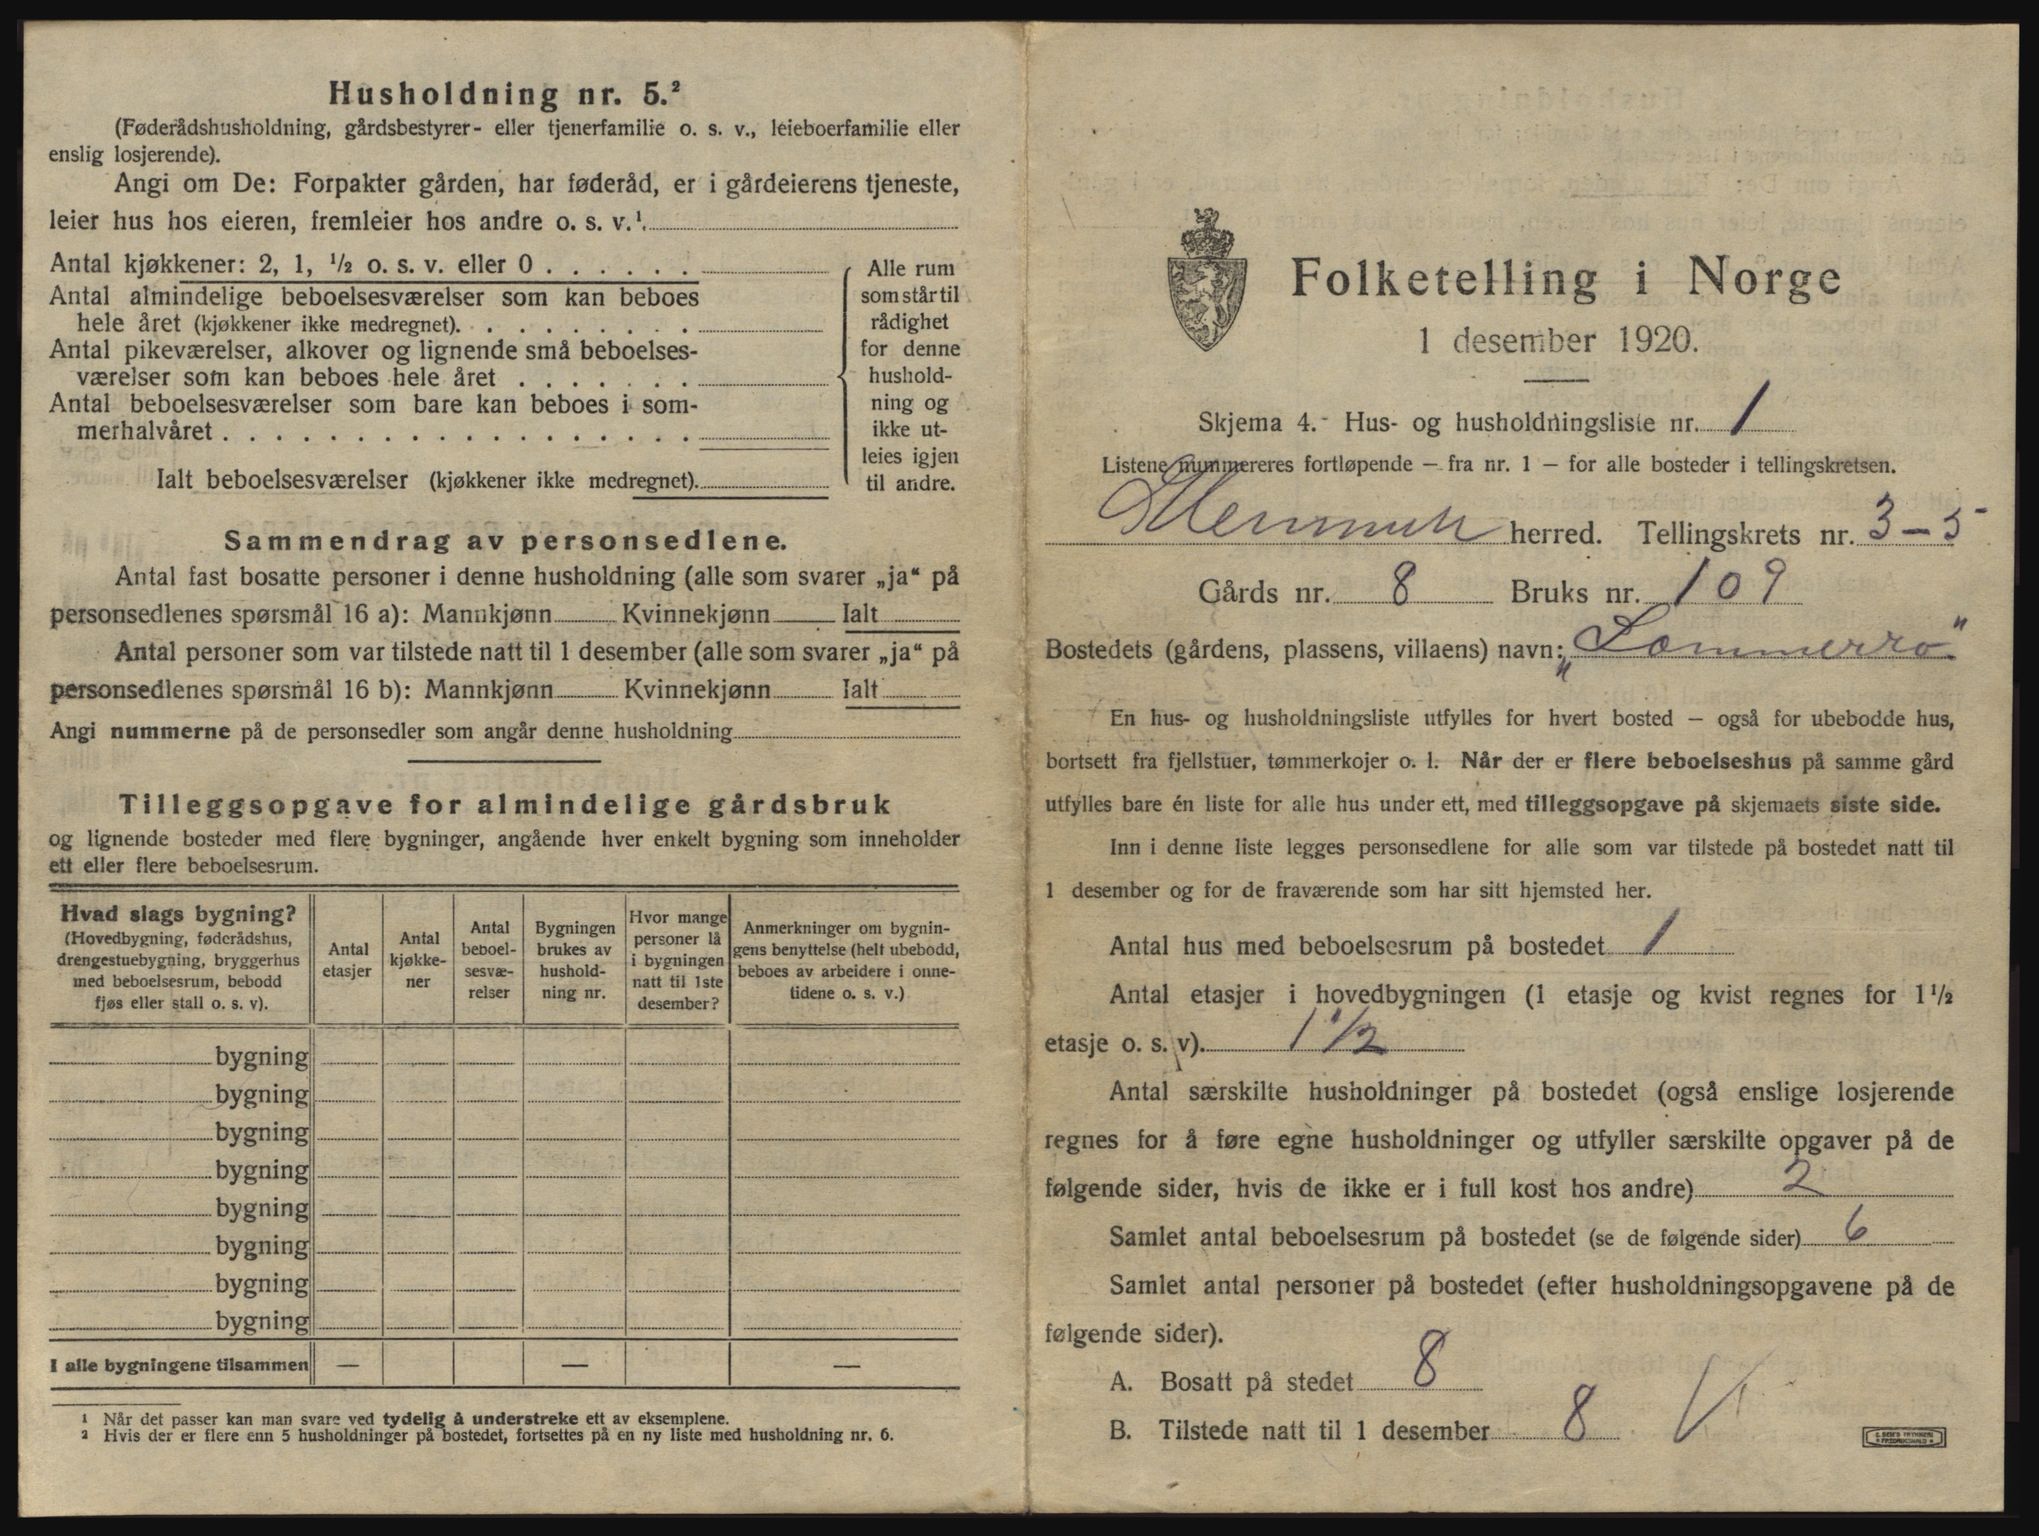 Husholdning nr. 5.²
(Føderådshusholdning, gårdsbestyrer- eller tjenerfamilie o. s. v., leieboerfamilie eller
enslig losjerende).
Angi om De: Forpakter gården, har føderåd, er i gårdeierens tjeneste,
leier hus hos eieren, fremleier hos andre o. s. v.¹.
Antal kjøkkener: 2, 1, ½ o. s. v. eller 0 . . . . . .
Antal almindelige beboelsesværelser som kan beboes
hele året (kjøkkener ikke medregnet). . . . . . . . .
Antal pikeværelser, alkover og lignende små beboelses-
værelser som kan beboes hele året . . . . . . .
Antal beboelsesværelser som bare kan beboes i som-
merhalvåret . . . . . . . . . . . . . . . . . .
Ialt beboelsesværelser (kjøkkener ikke medregnet).
Alle rum
som står til
rådighet
for denne
hushold-
ning og
ikke ut-
leies igjen
til andre.
Sammendrag av personsedlene.
Antal fast bosatte personer i denne husholdning (alle som svarer „ja“ på
personsedlenes spørsmål 16 a): Mannkjønn Kvinnekjønn Ialt
Antal personer som var tilstede natt til 1 desember (alle som svarer „ja“ på
personsedlenes spørsmål 16 b): Mannkjønn Kvinnekjønn Ialt
Angi nummerne på de personsedler som angår denne husholdning
Tilleggsopgave for almindelige gårdsbruk
og lignende bosteder med flere bygninger, angående hver enkelt bygning som inneholder
ett eller flere beboelsesrum.
Hvad slags bygning?
(Hovedbygning, føderådshus,
drengestuebygning, bryggerhus
med beboelsesrum, bebodd
fjøs eller stall o. s. v).
Antal
etasjer
Antal
kjøkke-
ner
Antal
beboel-
sesvæ-
relser
Bygningen
brukes av
hushold-
ning nr.
Hvor mange
personer lå
i bygningen
natt til 1ste
desember?
Anmerkninger om bygnin-
gens benyttelse (helt ubebodd,
beboes av arbeidere i onne-
tidene o. s. v.)
bygning
bygning
bygning
bygning
bygning
bygning
bygning
bygning
I alle bygningene tilsammen — — —
¹ Når det passer kan man svare ved tydelig å understreke ett av eksemplene.
² Hvis der er flere enn 5 husholdninger på bostedet, fortsettes på en ny liste med husholdning nr. 6.
Folketelling i Norge
1 desember 1920.
Skjema 4. Hus- og husholdningsliste nr. 1
Listene nummereres fortløpende — fra nr. 1 — for alle bosteder i tellingskretsen.
herred. Tellingskrets nr. 3-5
Gårds nr. 8 Bruks nr. 109
Bostedets (gårdens, plassens, villaens) navn: „Sommerro“
En hus- og husholdningsliste utfylles for hvert bosted — også for ubebodde hus,
bortsett fra fjellstuer, tømmerkojer o. l. Når der er flere beboelseshus på samme gård
utfylles bare én liste for alle hus under ett, med tilleggsopgave på skjemaets siste side.
Inn i denne liste legges personsedlene for alle som var tilstede på bostedet natt til
1 desember og for de fraværende som har sitt hjemsted her.
Antal hus med beboelsesrum på bostedet 1
Antal etasjer i hovedbygningen (1 etasje og kvist regnes for 1½
etasje o. s. v). 1 1/2
Antal særskilte husholdninger på bostedet (også enslige losjerende
regnes for å føre egne husholdninger og utfyller særskilte opgaver på de
følgende sider, hvis de ikke er i full kost hos andre) 2
Samlet antal beboelsesrum på bostedet (se de følgende sider) 6
Samlet antal personer på bostedet (efter husholdningsopgavene på de
følgende sider).
A. Bosatt på stedet 8
B. Tilstede natt til 1 desember 8